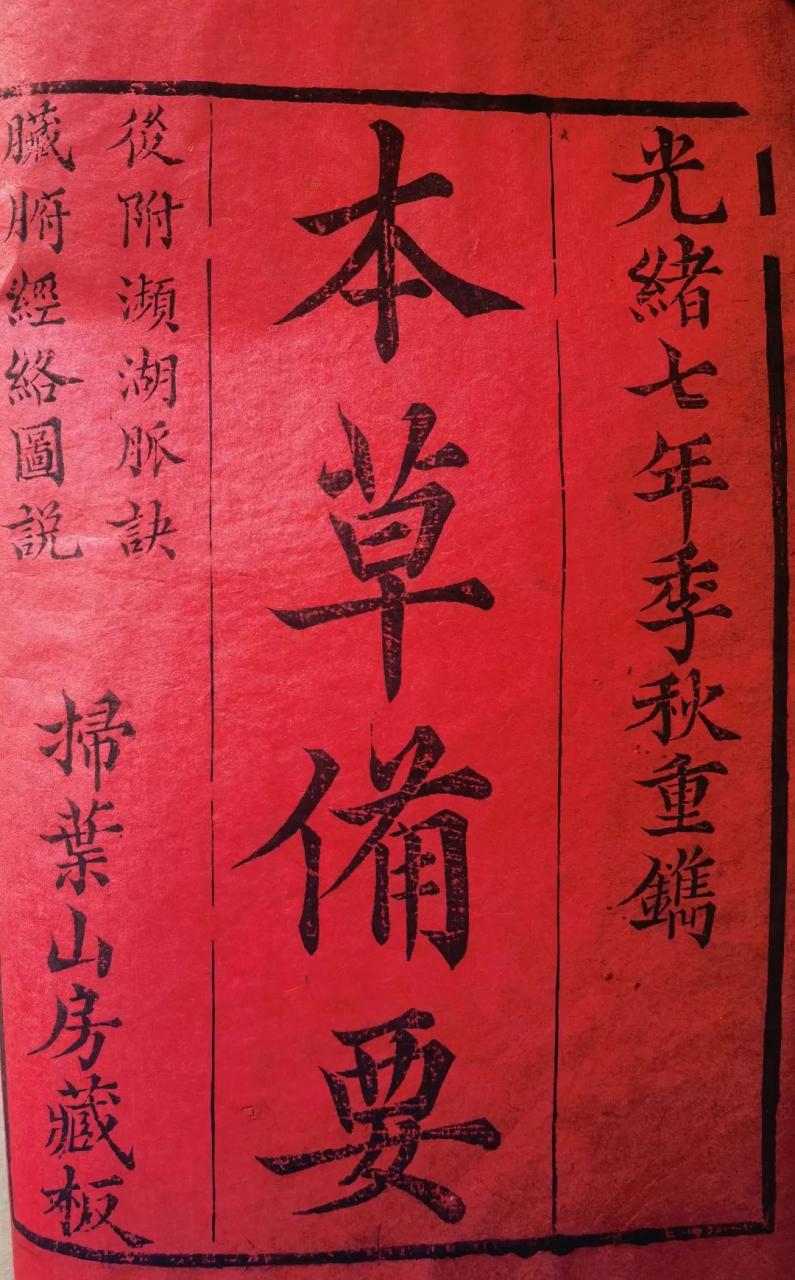 光緒七年季秋重鐫
本草備要
後附瀕湖脈訣
臟腑經絡圖説
掃葉山房藏板